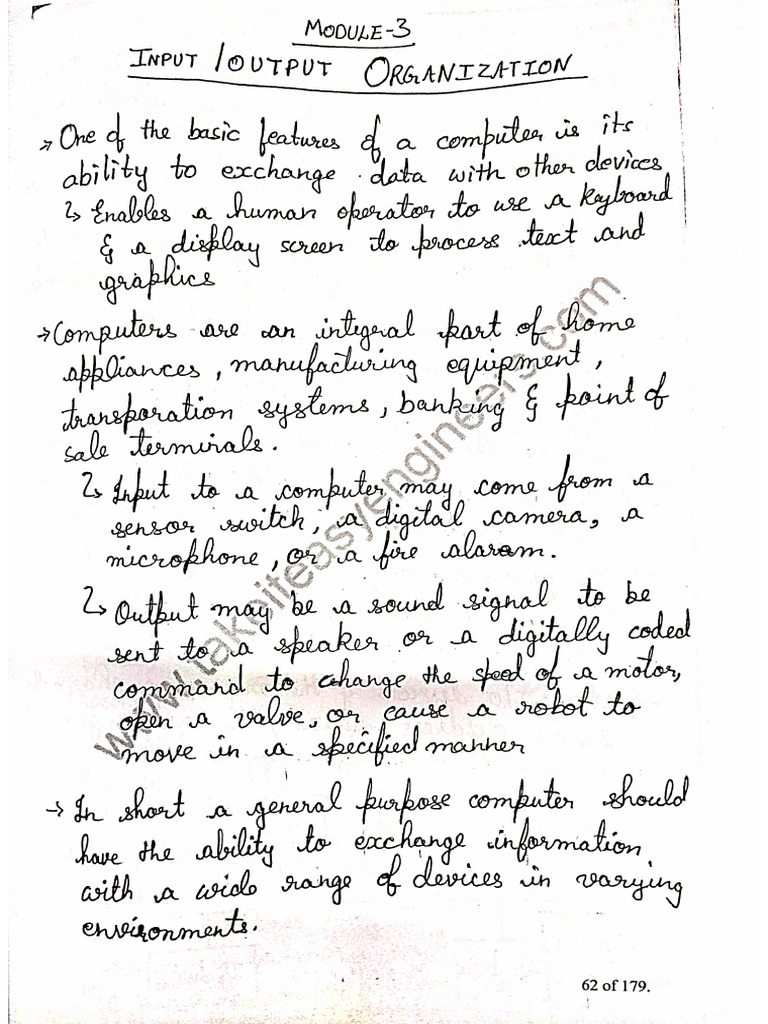 MODULE-3
INPUT / OUTPUT ORGANIZATION
→ One of the basic features of a computer is its
ability to exchange data with other devices
↳ Enables a human operator to use a keyboard
& a display screen to process text and
graphics
→ Computers are an integral part of home
appliances, manufacturing equipment,
transporation systems, banking & point of
sale terminals.
↳ Input to a computer may come from a
sensor switch, a digital camera, a
microphone, or a fire alaram.
↳ Output may be a sound signal to be
sent to a speaker or a digitally coded
command to change the speed of a motor,
open a valve, or cause a robot to
move in a specified manner
→ In short a general purpose computer should
have the ability to exchange information
with a wide range of devices in varying
environments.
www.takeiteasyengineers.com
62 of 179.